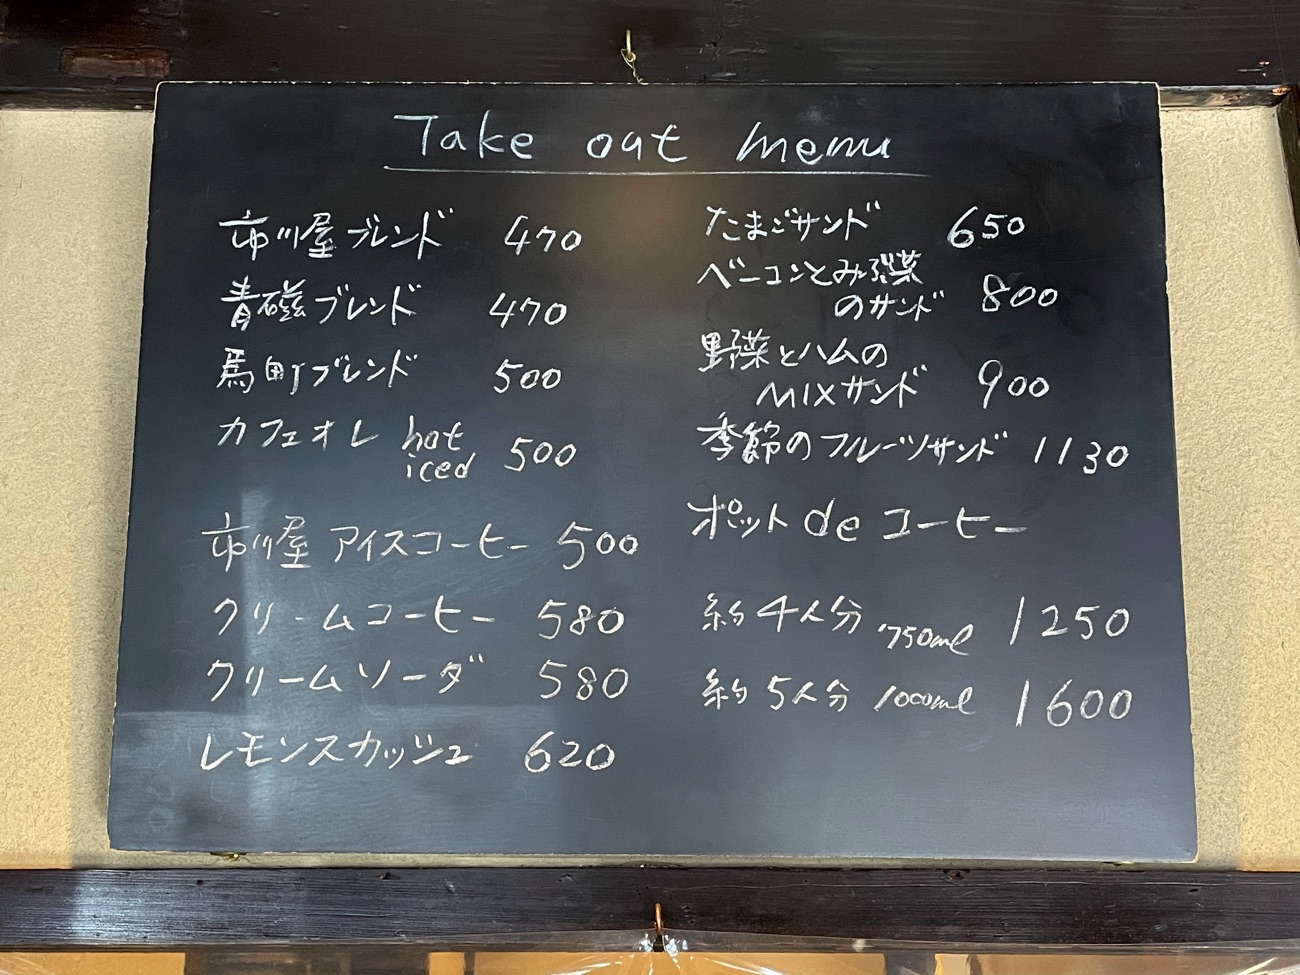 Take out menu
市川屋ブレンド 470
青磁ブレンド 470
馬町ブレンド 500
カフェオレ hot iced 500
市川屋アイスコーヒー 500
クリームコーヒー 580
クリームソーダ 580
レモンスカッシュ 620
たまごサンド 650
ベーコンとみぶ菜
のサンド 800
野菜とハムの
MIXサンド 900
季節のフルーツサンド 1130
ポットdeコーヒー
約4人分 750ml 1250
約5人分 1000ml 1600